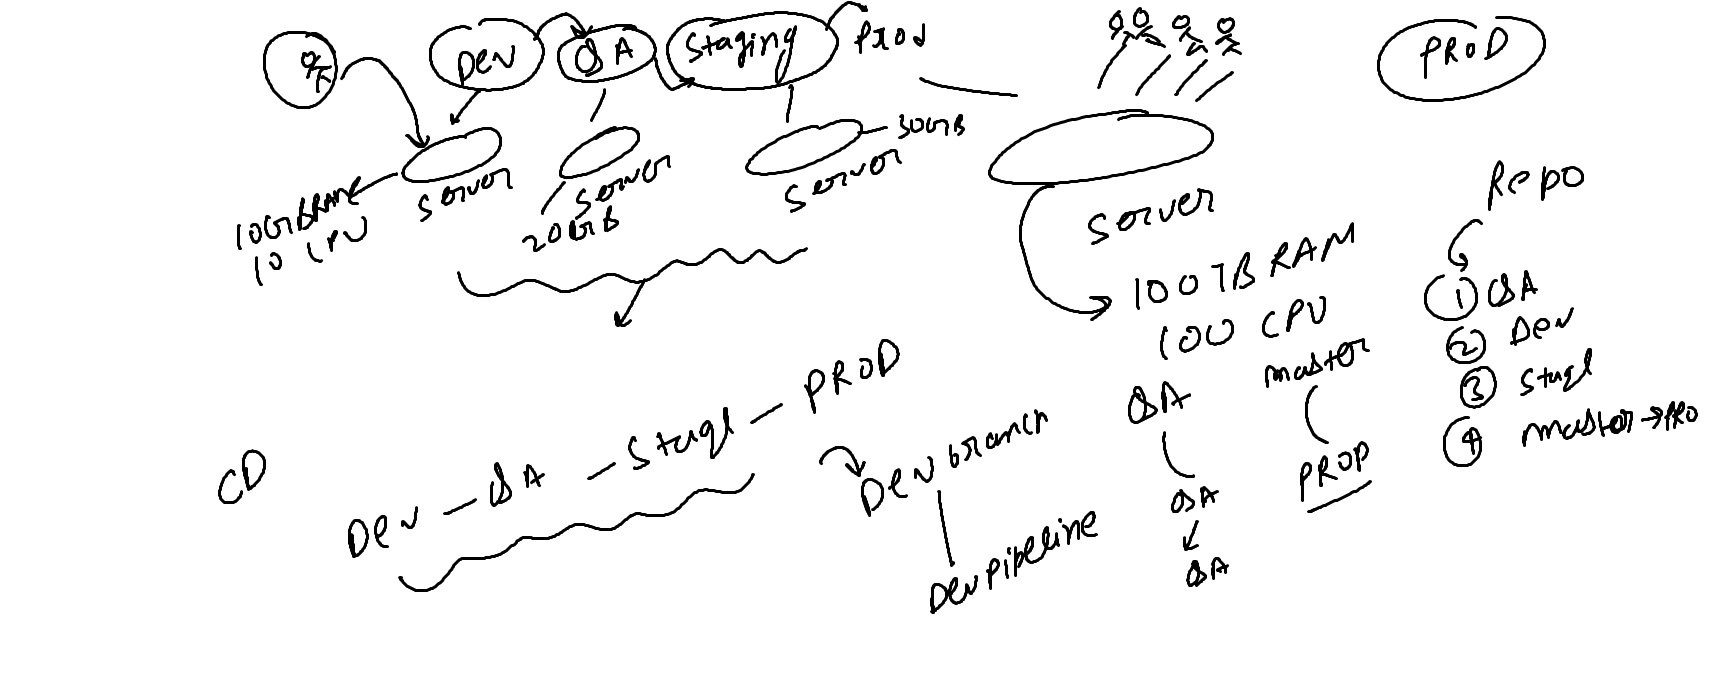 DEV
QA
Staging
PROD
PROD
10GB RAM
10 CPU
Server
Server
20GB
Server
30GB
Server
100TB RAM
100 CPU
Repo
1 QA
2 Dev
3 Stage
4 master → PRO
CD
Dev - QA - Stage - PROD
Dev branch
Dev pipeline
QA
QA
QA
master
PROP